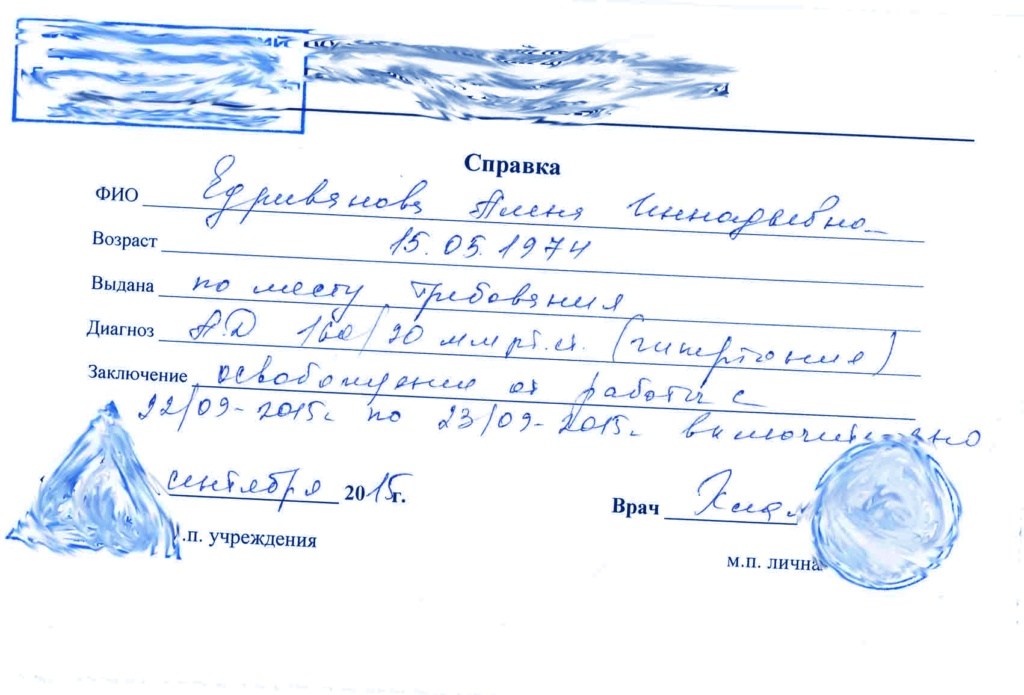 Справка
ФИО Едривянова Алена Геннадьевна
Возраст 15.05.1974
Выдана по месту требования
Диагноз А.Д 160/90 мм рт.ст. (гипертония)
Заключение освобождение от работы с
22/09-2015г по 23/09-2015г включительно
сентября 2015г.
Врач
.п. учреждения
м.п. лична